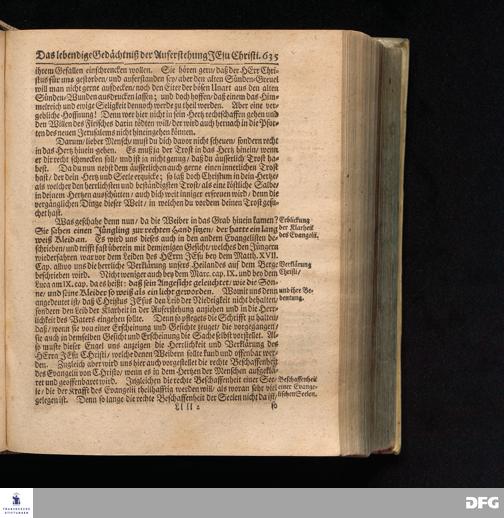 Das lebendige Gedächtniß der Auferstehung JEsu Christi. 635
ihrem Gefallen einschrencken wollen. Sie hören gern / daß der HErr Chri-
stus für uns gestorben / und auferstanden sey / aber den alten Sünden-Greuel
will man nicht gerne ausbecken / noch den Eiter der bösen Unart aus den alten
Sünden-Wunden ausdrucken lassen; und doch hoffen / daß einem das Him-
melreich und ewige Seligkeit dennoch werde zu theil werden. Aber eine ver-
gebliche Hoffnung! Denn wer hier nicht in sein Hertz rechtschaffen gehen und
den Willen des Fleisches darin tödten will / der wird auch hernach in die Pfor-
ten des neuen Jerusalems nicht hineingehen können.
Darum / lieber Mensch / must du dich davor nicht scheuen / sondern recht
in das Hertz hinein gehen. Es muß ja der Trost in das Hertz hinein / wenn
er dir recht schmecken soll / und ist ja nicht genug / daß du äusserlich Trost ha-
best. Da du nun nebst dem äusserlichen auch gerne einen innerlichen Trost
hast / der dein Hertz und Seele erquicke; so laß doch Christum in dein Hertze /
als welcher den herrlichsten und beständigsten Trost / als eine köstliche Salbe /
in deinem Hertzen ausschütten / auch dich weit inniger erfreuen wird / denn die
vergänglichen Dinge dieser Welt / in welchen du vordem deinen Trost gesu-
chet hast.
Was geschahe denn nun / da die Weiber in das Grab hinein kamen?
Sie sahen einen Jüngling zur rechten Hand sitzen / der hatte ein lang
weiß Kleid an. Es wird uns dieses auch in den andern Evangelisten be-
schrieben / und trifft fast überein mit demjenigen Gesicht / welches den Jüngern
wiederfahren war vor dem Leiden des HErrn JEsu bey dem Matth. XVII.
Cap. allwo uns die herrliche Verklärung unsers Heilandes auf dem Berge
beschrieben wird. Nicht weniger auch bey dem Marc. cap. IX. und bey dem
Luca am IX. cap. da es heißt: daß sein Angesicht geleuchtet / wie die Son-
ne / und seine Kleider so weiß als ein Licht geworden. Womit uns denn
angedeutet ist / daß Christus JEsus den Leib der Niedrigkeit nicht behalten /
sondern den Leib der Klarheit in der Auferstehung anziehen und in die Herr-
lichkeit des Vaters eingehen solte. Denn so pfleget die Schrifft zu halten /
daß / wenn sie von einer Erscheinung und Gesichte zeuget / die vorgegangen /
sie auch in demselben Gesicht und Erscheinung die Sache selbst vorstellet. Al-
so muste dieser Engel uns anzeigen die Herrlichkeit und Verklärung des
HErrn JEsu Christi / welche denen Weibern solte kund und offenbar wer-
den. Zugleich aber wird uns hier auch vorgestellet die rechte Beschaffenheit
des Evangelii von Christo / wenn es in dem Hertzen der Menschen aufgeklä-
ret und geoffenbaret wird. Ingleichen die rechte Beschaffenheit einer See-
le / die der Krafft des Evangelii theilhafftig werden will / als woran sehr viel
gelegen ist. Denn so lange die rechte Beschaffenheit der Seelen nicht da ist /
Ll ll 2
so
Erblickung
der Klarheit
des Evangelii.
Verklärung
Christi /
und ihre Be-
deutung.
Beschaffenheit
einer Evange-
lischen Seelen.
FRANCKESCHE
STIFTUNGEN
DFG